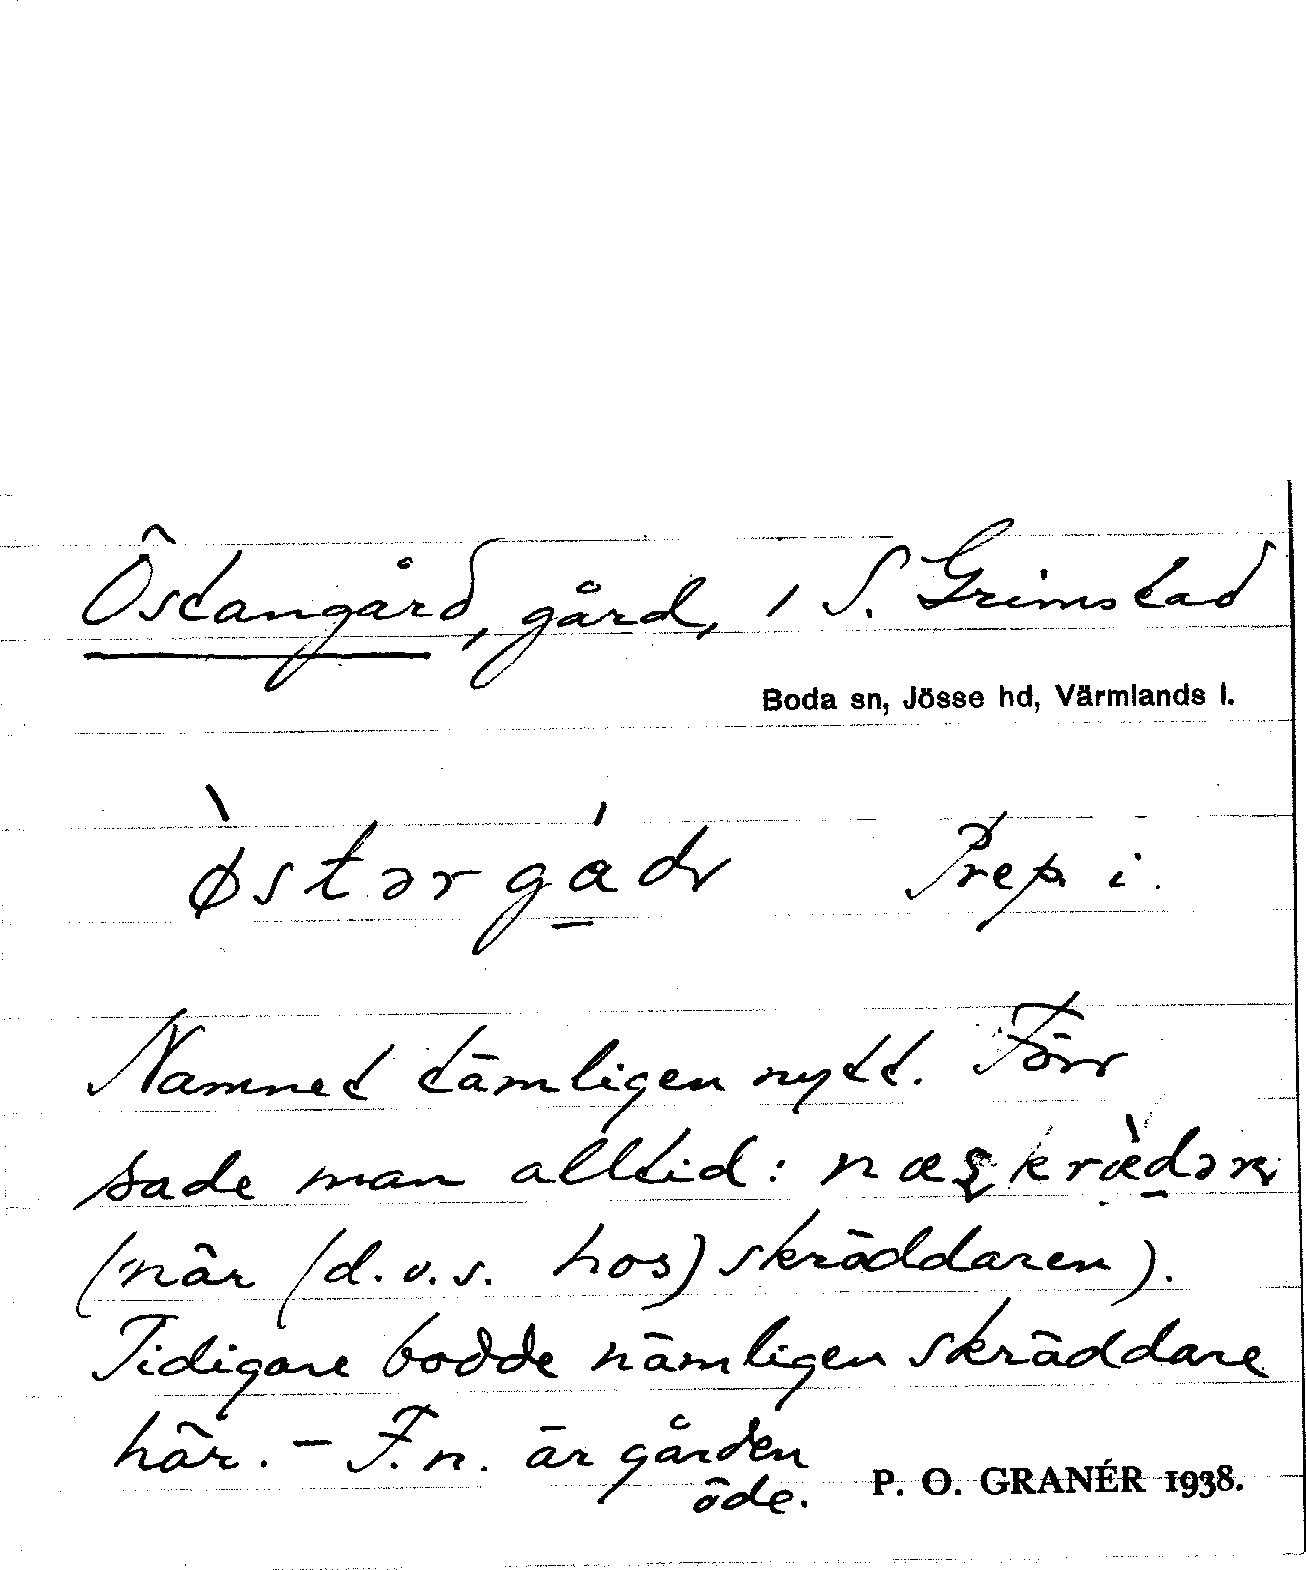 Östangård, gård, i S. Grimstad
Boda sn, Jösse hd, Värmlands l.
ø̀stərgá̱dɩ Prep. i.
Namnet tämligen nytt. Förr
sade man alltid:
(när (d.v.s. hos) skräddaren).
Tidigare bodde nämligen skräddare
här. – F.n. är gården
öde. P. O. GRANÉR 1938.